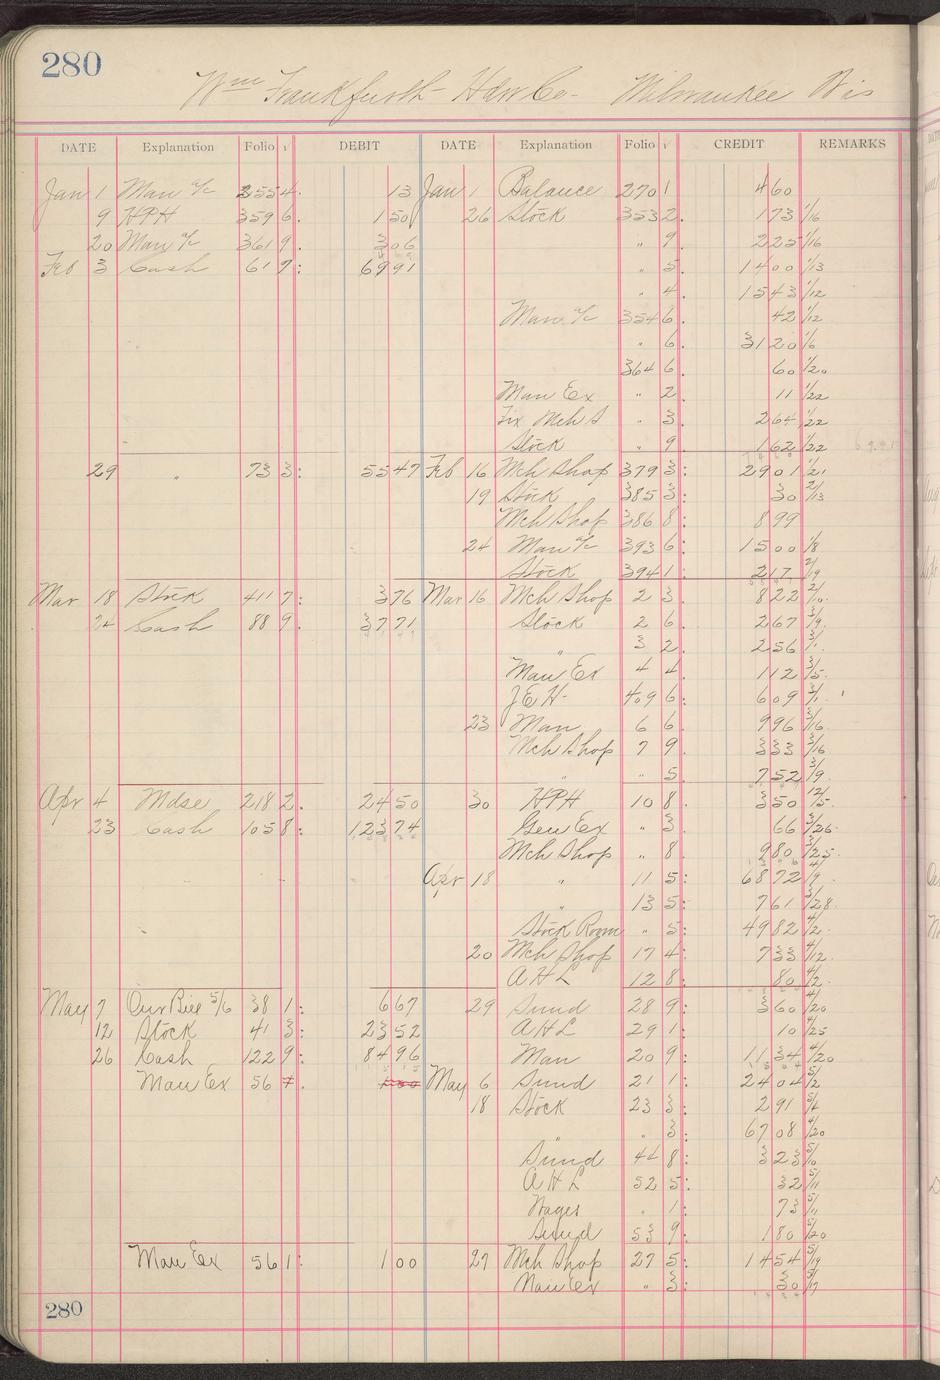 280
Wm Frankfurth Hdw Co. Milwaukee Wis
DATE Explanation Folio √ DEBIT DATE Explanation Folio √ CREDIT REMARKS
Jan 1 Man a/c 355 4. 13 Jan 1 Balance 270 1 4 60
9 HPH 359 6. 1 50 26 Stock 353 2. 1 73 1/16
20 Man a/c 361 9. 3 06 " 9. 2 25 1/16
Feb 3 Cash 61 9: 69 91 " 5. 14 00 1/13
" 4. 15 43 1/12
Man a/c 354 6. 42 1/12
" 6. 31 20 1/6
364 6. 60 1/20
Man Ex " 2. 11 1/22
Fix Mch S " 3. 2 64 1/22
Stock " 9. 1 62 1/22
29 " 73 3: 55 47 Feb 16 Mch Shop 379 3: 29 01 1/21
19 Stock 385 3: 30 2/13
Mch Shop 386 8: 8 99
24 Man a/c 393 6: 15 00 1/8
Stock 394 1: 2 17 2/19
Mar 18 Stock 411 7: 3 76 Mar 16 Mch Shop 2 3. 8 22
24 Cash 88 9. 37 71 Stock 2 6. 2 67 3/9.
" 3 2. 2 56 3/1.
Man Ex 4 4. 1 12 3/5.
J E H 409 6: 6 09 3/1.
23 Man 6 6. 9 96 3/16.
Mch Shop 7 9. 3 33 3/16
" " 5. 7 52 3/9.
Apr 4 Mdse 218 2. 24 50 30 HPH 10 8. 3 50 12/5.
23 Cash 105 8: 123 74 Gen Ex " 3. 66 3/26.
Mch Shop " 8. 9 80 3/25.
Apr 18 " 11 5: 68 72 4/9.
" 13 5: 7 61 3/28.
Stock Room " 5: 49 82 4/2.
20 Mch Shop 17 4: 7 33 4/12.
A H L 12 8: 80 4/2.
May 7 Our Bill 5/6 38 1: 6 67 29 Sund 28 9: 3 60 4/20
12 Stock 41 3: 23 52 A H L 29 1: 10 4/25
26 Cash 122 9: 84 96 Man 20 9: 11 34 4/20
Man Ex 56 7. 1 00 May 6 Sund 21 1: 24 04 5/2
18 Stock 23 3: 2 91 5/2
" " 3: 67 08 4/20
Sund 44 8: 3 23 5/10
A H L 52 5: 32 5/11
Wages " 1: 73 5/11
Sund 53 9: 1 80 5/20
Man Ex 56 1: 1 00 27 Mch Shop 27 5: 14 54 5/19
Man Ex " 3: 30 5/17
280